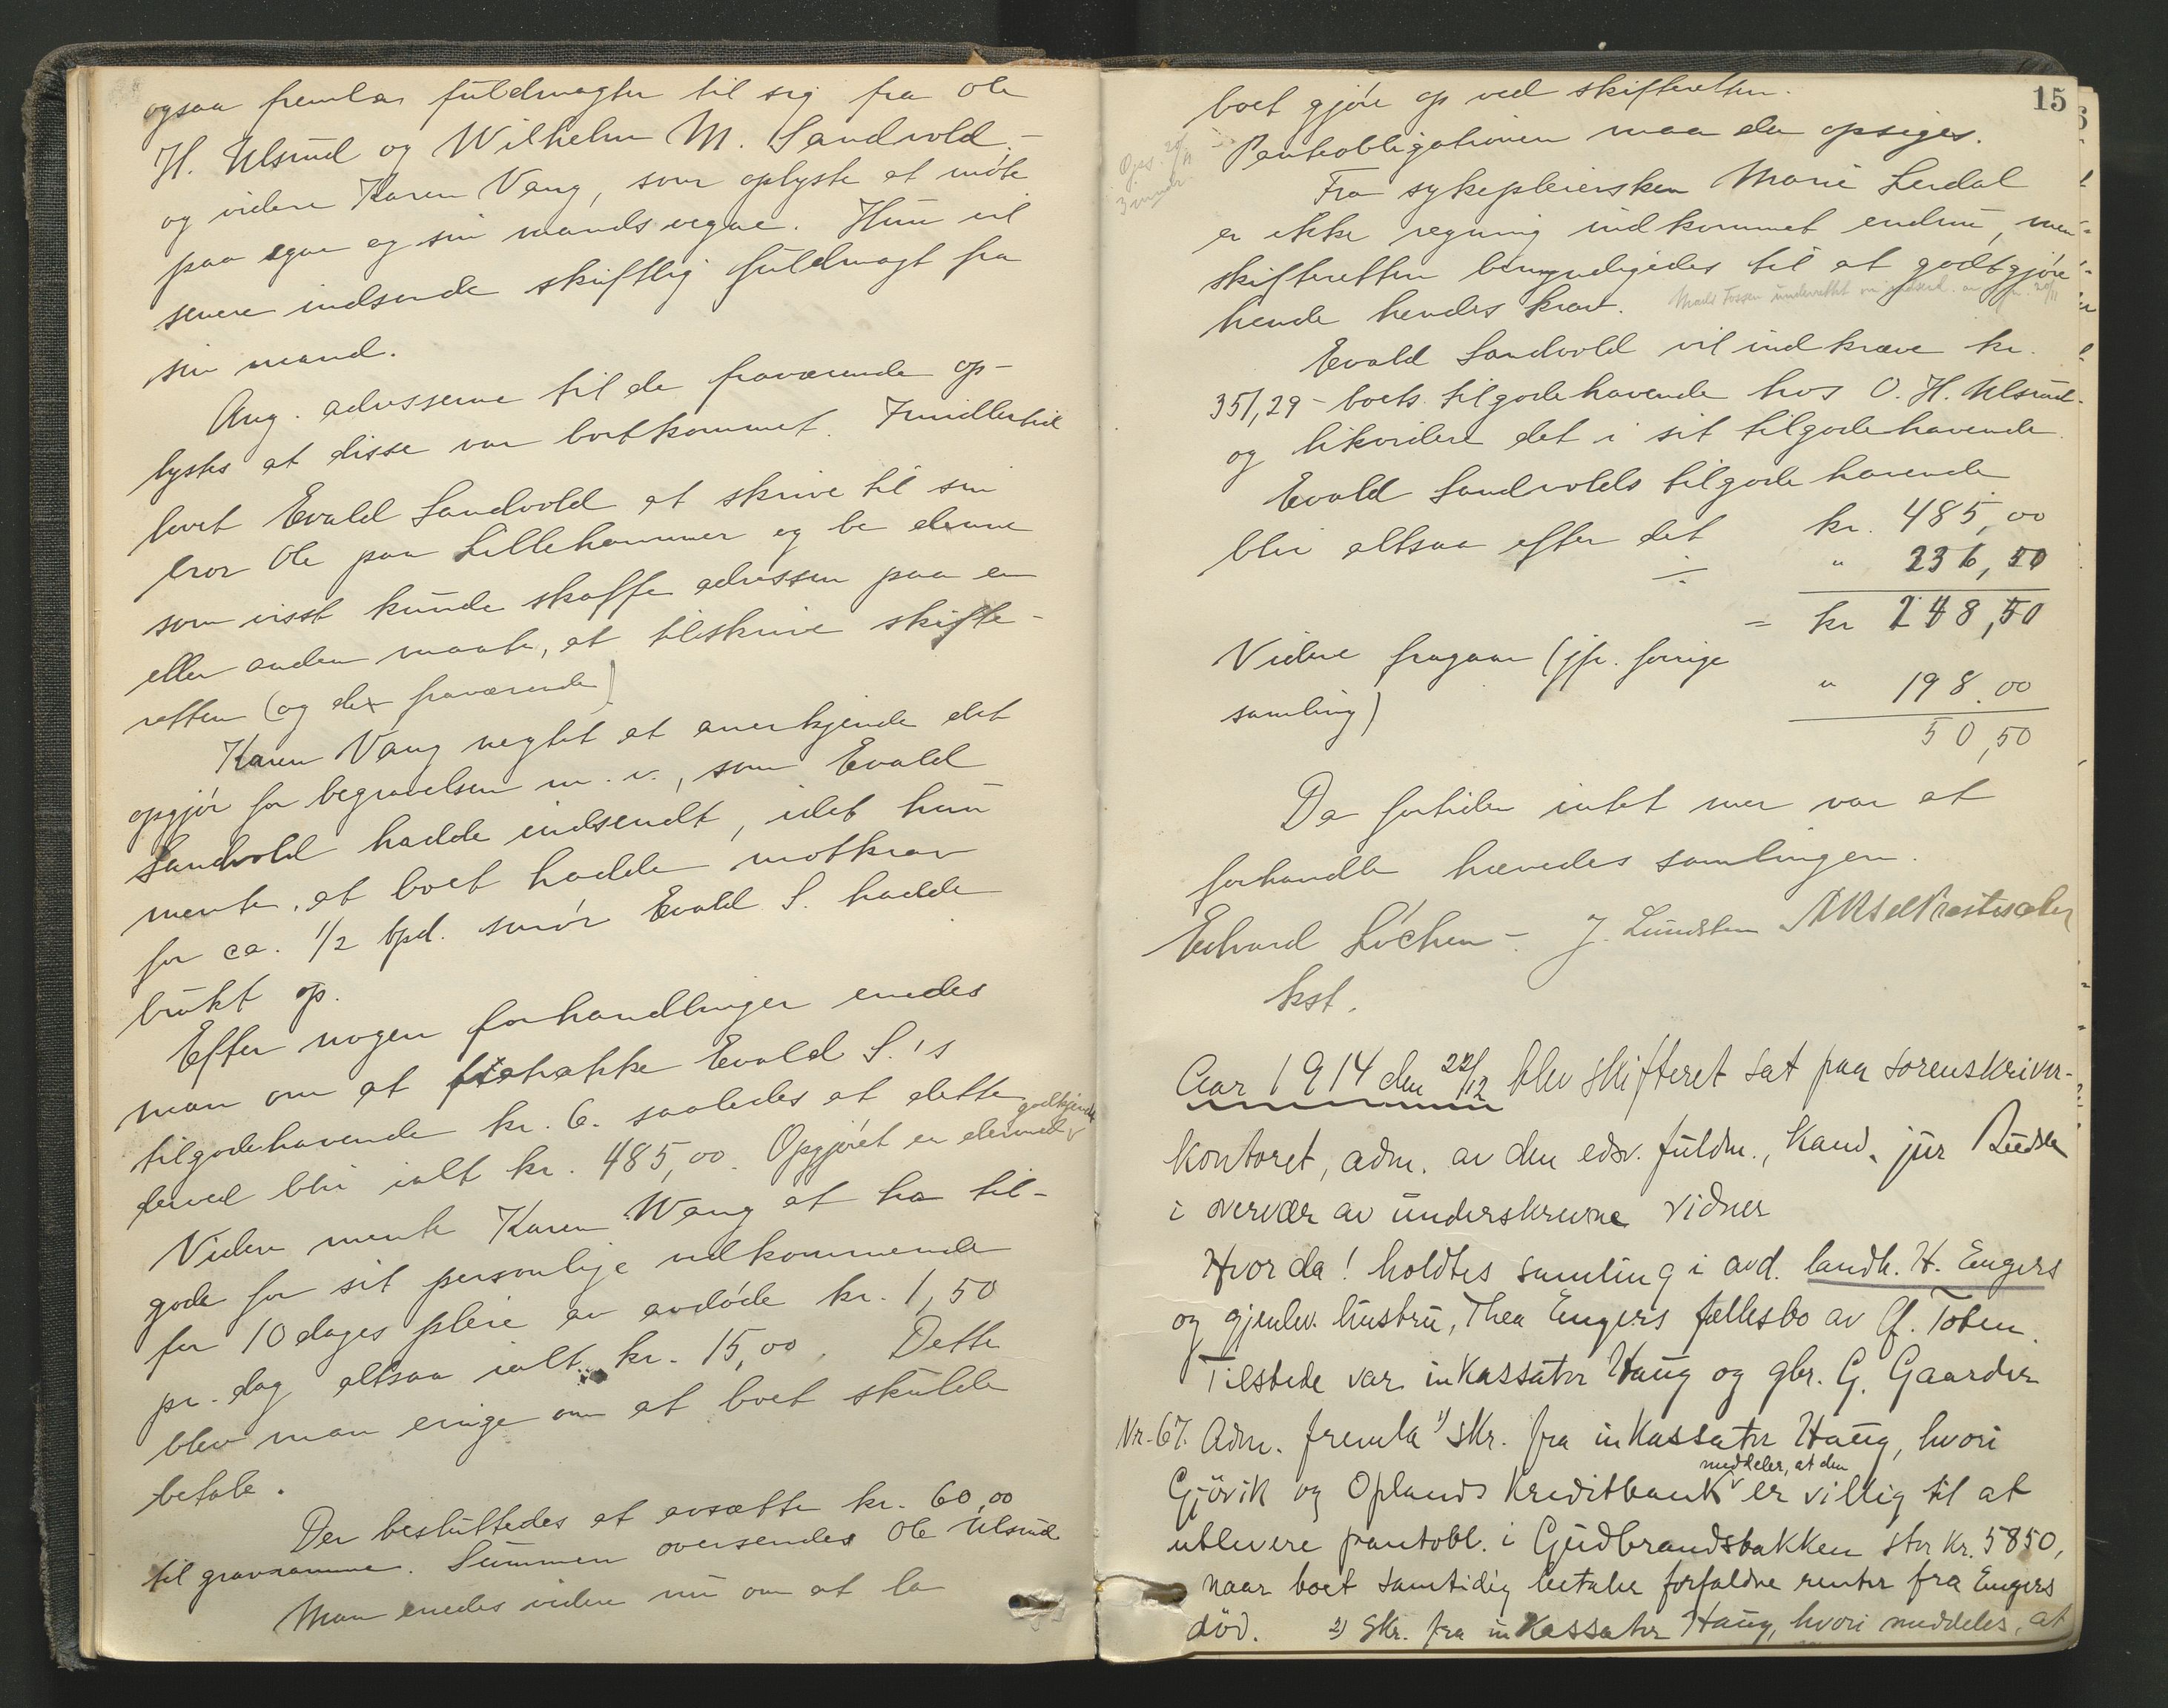 ogsaa fremla fuldmagter til sig fra Ole
H. Ulsrud og Wilhelm M. Sandvold –
og videre Karen Vang, som oplyste at møte
paa egne og sin mands vegne. Hun vil
senere indsende skriftlig fuldmagt fra
sin mand.
Ang. adresserne til de fraværende op-
lystes at disse var bortkommet. Imidlertid
lovet Evald Sandvold at skrive til sin
bror Ole paa Lillehammer og be denne
som visst kunde skaffe adressen paa en
eller anden maate, at tilskrive skifte-
retten (og de fraværende)
Karen Vang negtet at anerkjende det
opgjør for begravelsen m.v., som Evald
Sandvold hadde indsendt, idet hun
mente, at boet hadde motkrav
for ca. 1/2 bpd. smør Evald S. hadde
brukt op.
Efter nogen forhandlinger enedes
man om at fratrække Evald S.'s
tilgodehavende kr. 6. saaledes at dette
derved blir ialt kr. 485,00. Opgjøret er dermed godkjendt
Videre mente Karen Wang at ha til-
gode for sit personlige vedkommende
for 10 dages pleie av avdøde kr. 1,50
pr. dag altsaa ialt kr. 15,00. Dette
blev man enige om at boet skulde
betale.
Der besluttedes at avsætte kr. 60,00
til gravramme. Summen oversendes Ole Ulsrud
Man enedes videre nu om at la
15
boet gjøre op ved skifteretten.
Panteobligationen maa da opsiges.
Ops. 20/11
3 mdr
Fra sykepleiersken Marie Lerdal
er ikke regning indkommet endnu, men
skifteretten bemyndigedes til at godtgjøre
hende hendes krav.
Evald Sandvold vil indkræve kr.
351,29 – boets tilgodehavende hos O. H. Ulsrud –
og likvidere det i sit tilgodehavende
Evald Sandvolds tilgodehavende
blir altsaa efter det kr. 485,00
÷ " 236,50
= kr 248,50
Videre fragaar (jfr. forrige
samling) " 198.00
50,50
Da fortiden intet mer var at
forhandle hævedes samlingen.
Edvard Løchen – J. Lundsten Aksel Præstesæter
kst.
Aar 1914 den 22/12 blev skifteret sat paa sorenskriver-
kontoret, adm. av den edsv. fuldm., kand. jur
i overvær av underskrevne vidner
Hvor da! holdtes samling i avd. landh. H. Engers
og gjenlev. hustru, Thea Engers fællesbo av Ø. Toten.
Tilstede var inkassator Haug og gbr. G. Gaarder
Nr. 67. Adm. fremla 1) skr. fra inkassator Haug, hvori
Gjövik og Oplands Kreditbank meddeler, at den er villig til at
utlevere pantobl. i Gudbrandsbakken stor kr. 5850,
naar boet samtidig betaler forfaldne renter fra Engers
död. 2) Skr. fra inkassator Haug, hvori meddeles, at